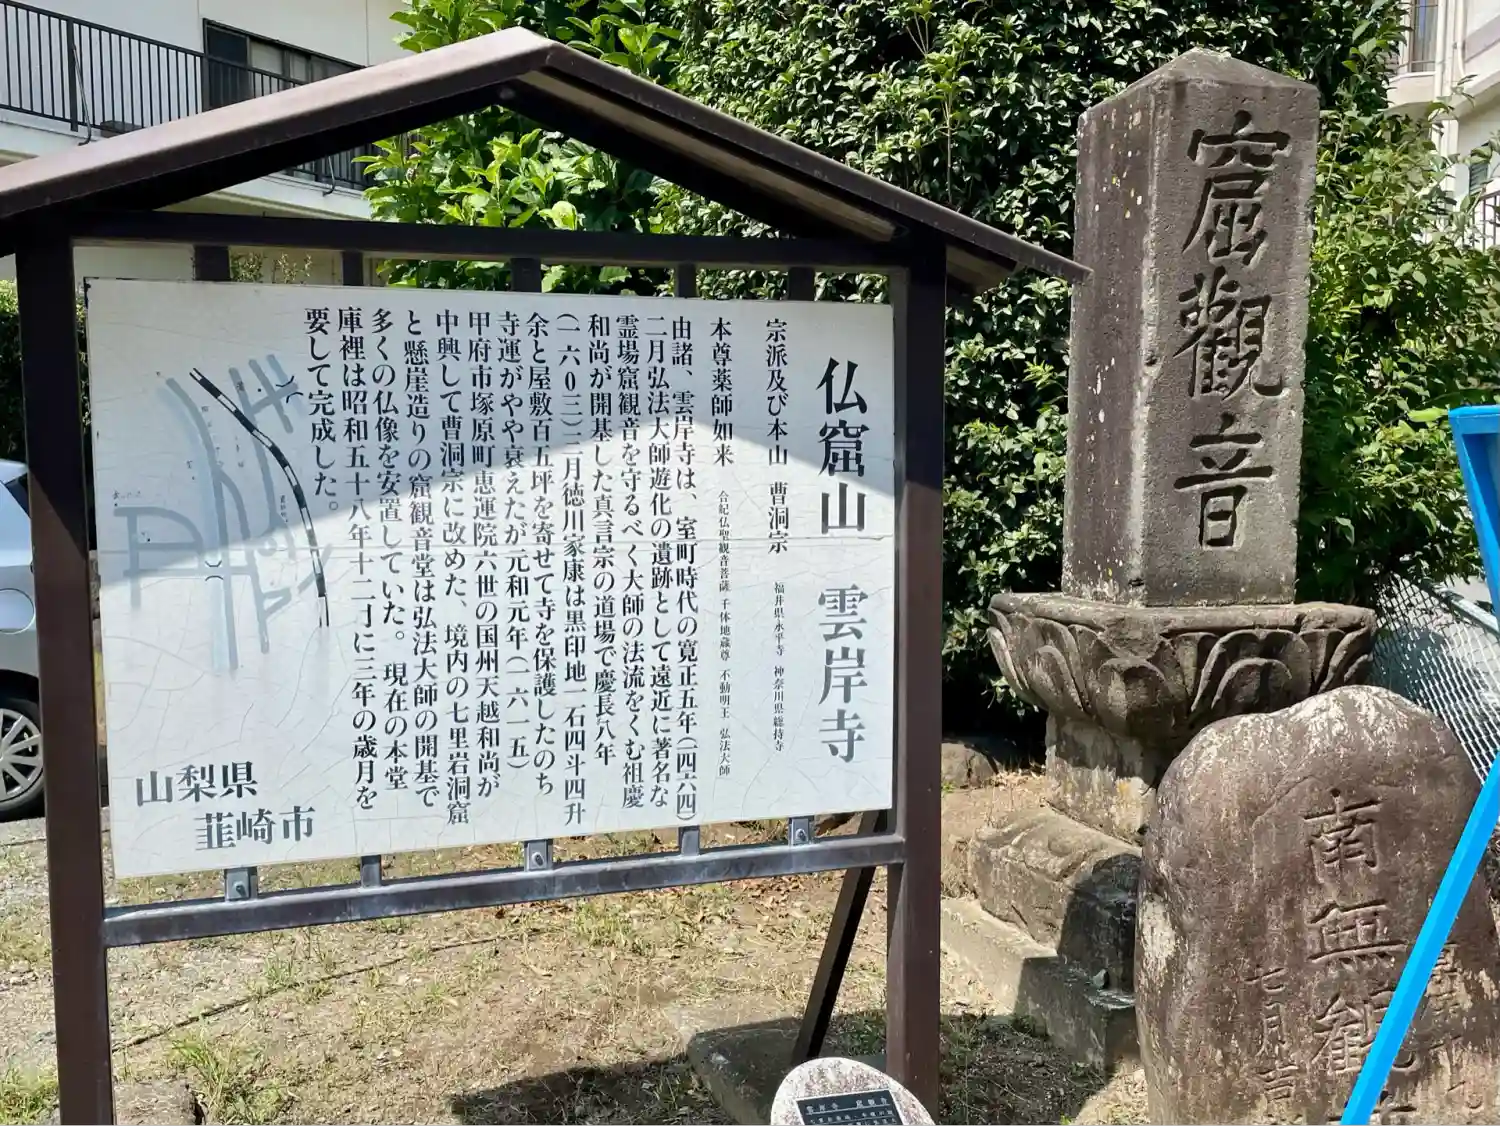 仏窟山 雲岸寺
宗派及び本山 曹洞宗 福井県永平寺 神奈川県総持寺
本尊薬師如来 合紀仏聖観音菩薩 千体地蔵尊 不動明王 弘法大師
由諸、雲岸寺は、室町時代の寛正五年(一四六四)
二月弘法大師遊化の遺跡として遠近に著名な
霊場窟観音を守るべく大師の法流をくむ祖慶
和尚が開基した真言宗の道場で慶長八年
(一六0三)三月徳川家康は黒印地一石四斗四升
余と屋敷百五坪を寄せて寺を保護したのち
寺運がやや衰えたが元和元年(一六一五)
甲府市塚原町恵運院六世の国州天越和尚が
中興して曹洞宗に改めた、境内の七里岩洞窟
と懸崖造りの窟観音堂は弘法大師の開基で
多くの仏像を安置していた。現在の本堂
庫裡は昭和五十八年十二月に三年の歳月を
要して完成した。
山梨県
韮崎市
窟觀音
南無觀
七月吉